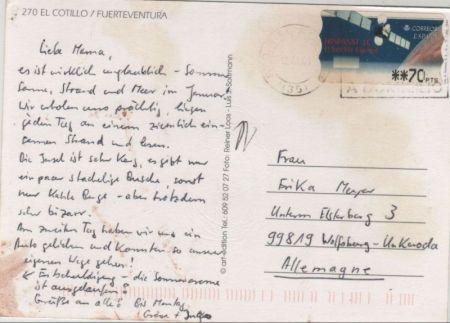 270 EL COTILLO / FUERTEVENTURA
Liebe Mama,
es ist wirklich unglaublich - Sommer
Sonne, Strand und Meer im Januar.
Wir erholen uns prächtig, liegen
jeden Tag an einem ziemlich ein-
samen Strand und lesen.
Die Insel ist sehr karg, es gibt nur
ein paar stachelige Büsche, sonst
nur kahle Berge - aber trotzdem
sehr bizarr.
Am zweiten Tag haben wir uns ein
Auto geliehen und konnten so unsere
eigenen Wege gehen!
Entschuldigung - die Sonnencreme
ist ausgelaufen!
Grüße an alle! Bis Montag
art edition Tel.: 609 52 07 27 Foto: Reiner Loos - Luis
CORREOS
ESPAÑA
HISPASAT 1C
**70 PTS
Frau
Erika Meyer
Unterm Elsterberg 3
99819 Wolfsburg-Unkeroda
Allemagne